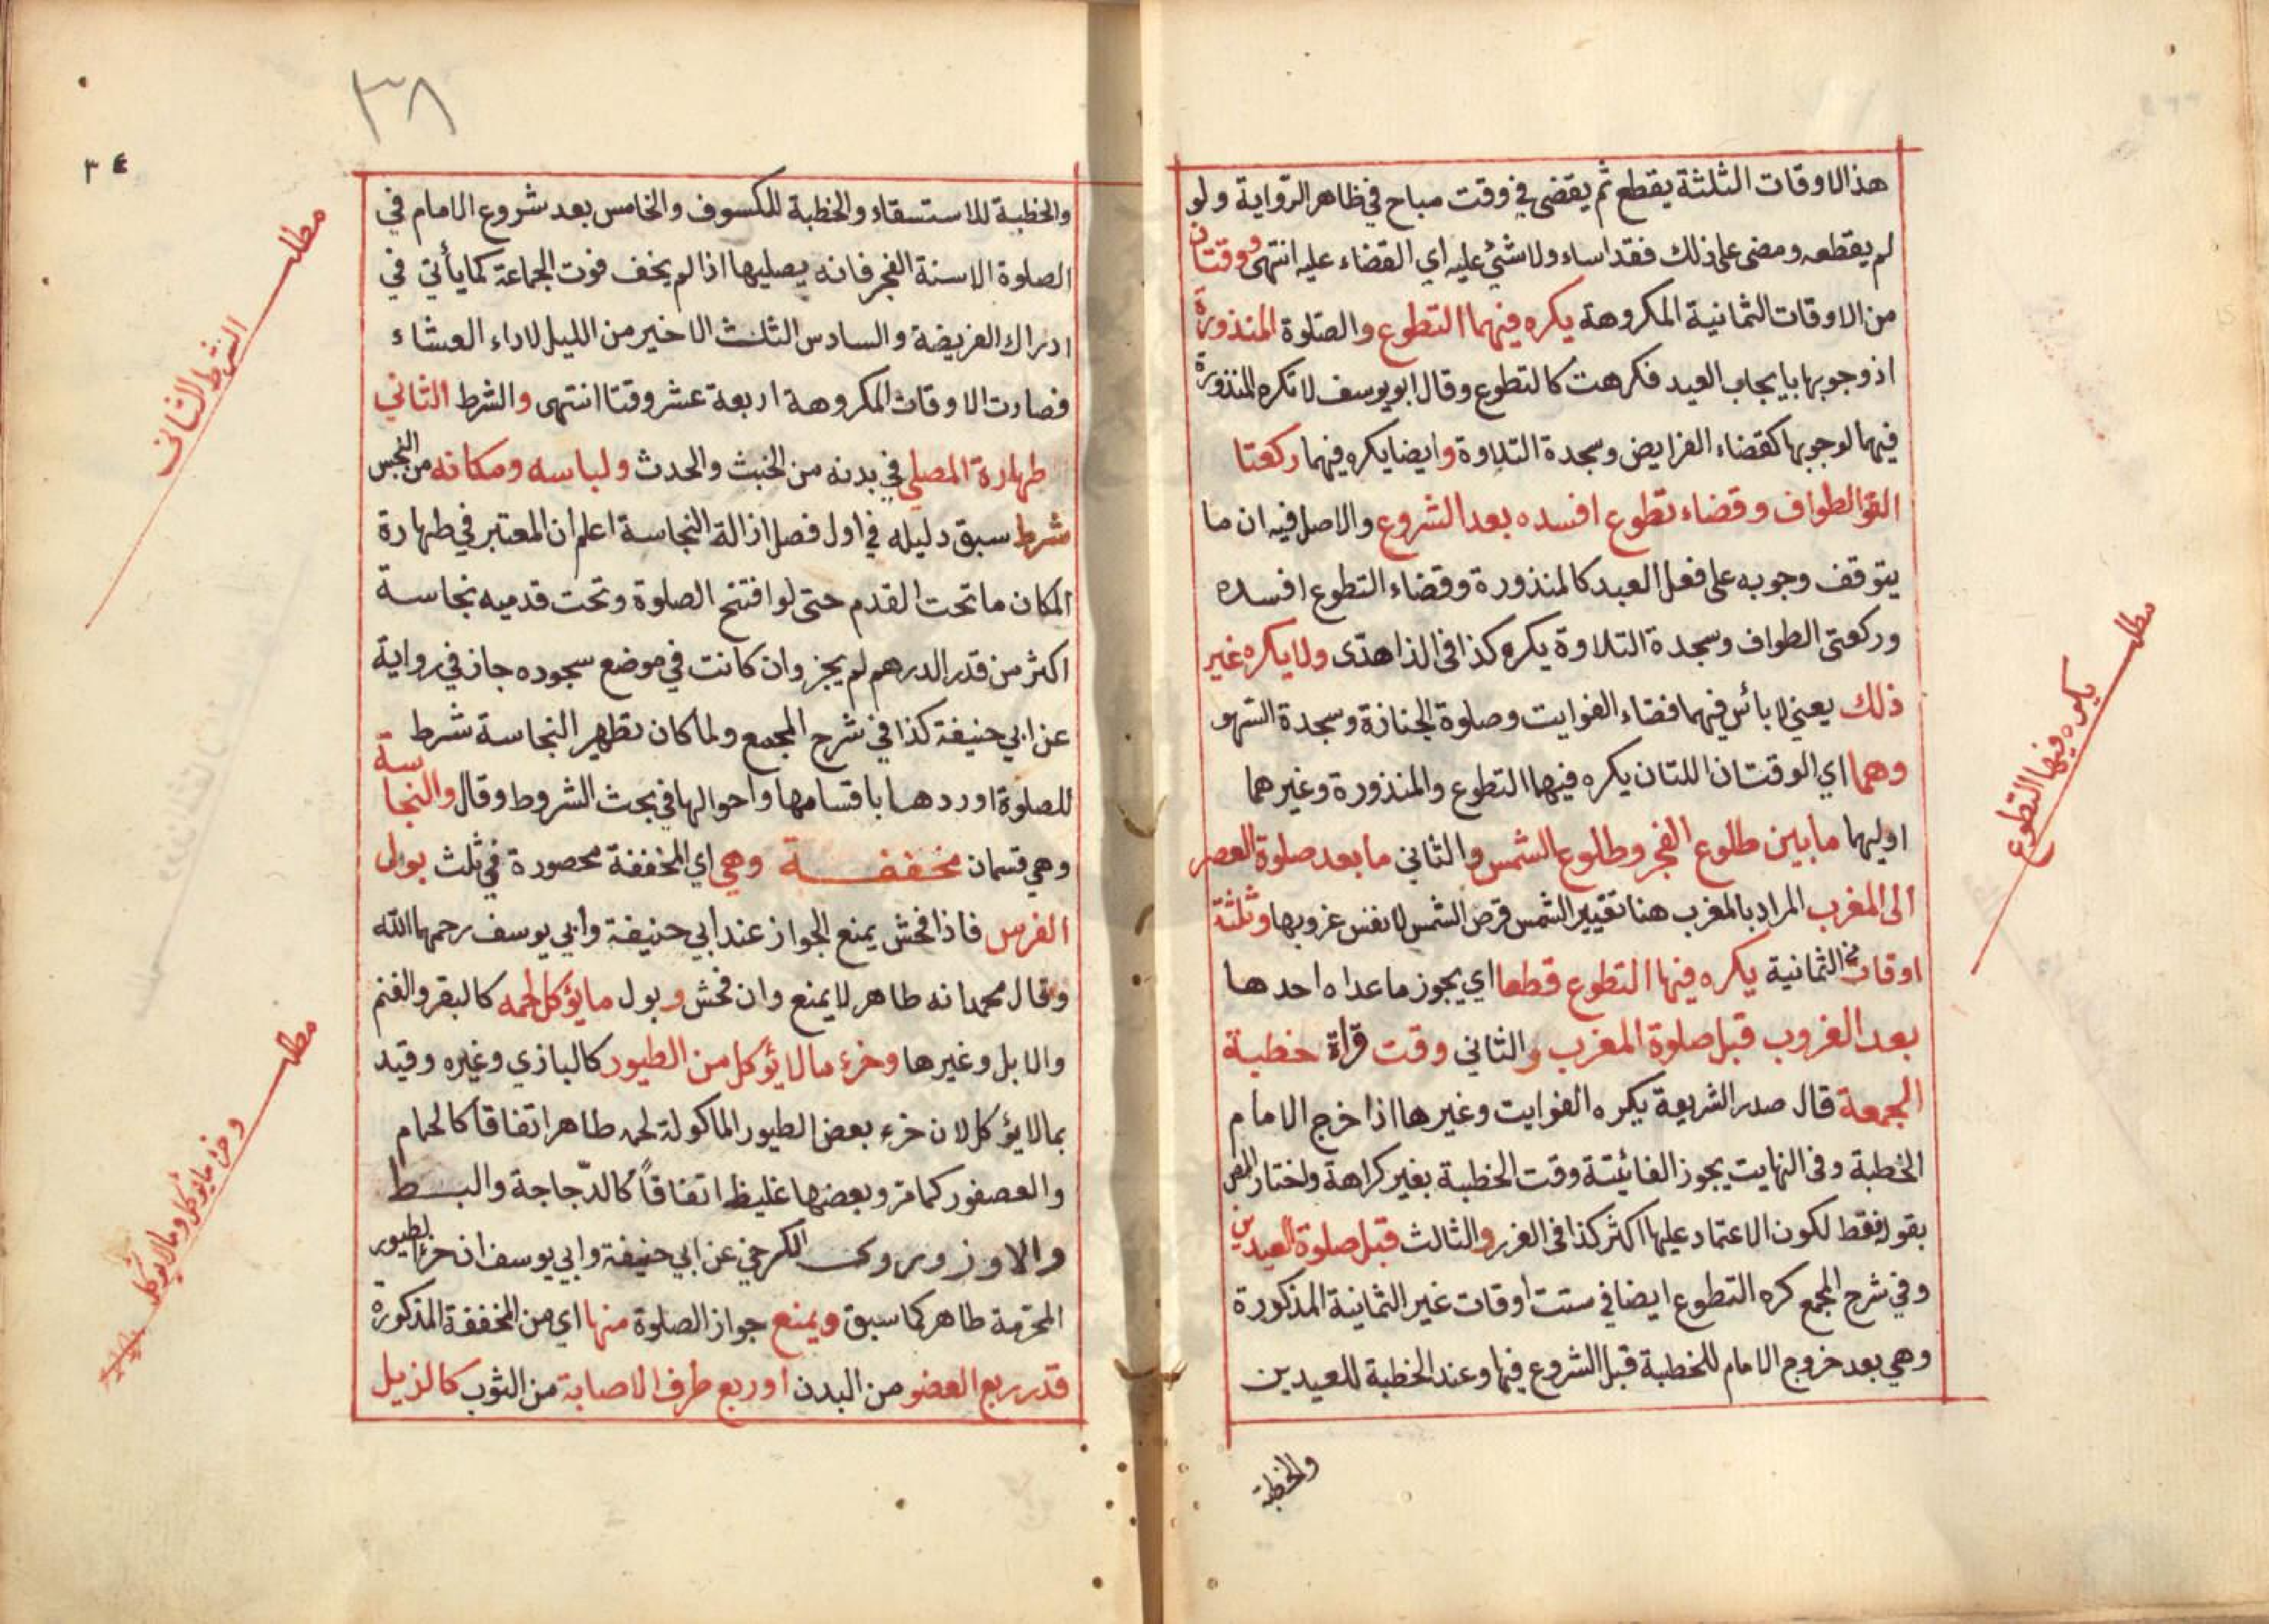 هذا الاوقات الثلثة يقطع ثم يقضى في وقت مباح في ظاهر الرواية ولو
لم يقطعه ومضى على ذلك فقد اساء ولا شئ عليه اي القضاء عليه انتهى ووقتان
من الاوقات الثمانية المكروهة يكره فيهما التطوع والصلوة المنذورة
اذ وجوبها بايجاب العبد فكرهت كالتطوع وقال ابو يوسف لا تكره المنذورة
فيهما لوجوبها كقضاء الفرايض وسجدة التلاوة وايضا يكره فيهما ركعتا
الطواف وقضاء تطوع افسده بعد الشروع والاصل فيه ان ما
يتوقف وجوبه على فعل العبد كالمنذورة وقضاء التطوع افسده
وركعتى الطواف وسجدة التلاوة يكره كذا فى الزاهدى ولا يكره غير
ذلك يعني لا بأس فيهما قضاء الفوايت وصلوة الجنازة وسجدة السهو
وهما اي الوقتان اللتان يكره فيهما التطوع والمنذورة وغيرهما
اوليهما ما بين طلوع الفجر وطلوع الشمس والثاني ما بعد صلوة العصر
الى المغرب المراد بالمغرب هنا تغيير الشمس قرص الشمس لا نفس غروبها وثلثة
اوقات من الثمانية يكره فيها التطوع قطعا اي يجوز ما عداه احدها
بعد الغروب قبل صلوة المغرب والثاني وقت قراة خطبة
الجمعة قال صدر الشريعة يكره الفوايت وغيرها اذا خرج الامام
الخطبة وفى النهايت يجوز الفائتة وقت الخطبة بغير كراهة واختار المص
بقوله فقط لكون الاعتماد عليها اكثر كذا فى الغرر والثالث قبل صلوة العيدين
وفي شرح المجمع كره التطوع ايضا في ستت اوقات غير الثمانية المذكورة
وهي بعد خروج الامام للخطبة قبل الشروع فيها وعند الخطبة للعيدين
والخطبة
مطلب
يكره فيها التطوع
٣٨
٣٤
والخطبة للاستسقاء والخطبة للكسوف والخامس بعد شروع الامام في
الصلوة الا سنة الفجر فانه يصليها اذا لم يخف فوت الجماعة كما يأتي في
ادراك الفريضة والسادس الثلث الاخير من الليل لاداء العشاء
فصارت الاوقات المكروهة اربعة عشر وقتا انتهى والشرط الثاني
طهارة المصلي في بدنه من الخبث والحدث ولباسه ومكانه من النجس
شرط سبق دليله في اول فصل ازالة النجاسة اعلم ان المعتبر في طهارة
المكان ما تحت القدم حتى لو افتتح الصلوة وتحت قدميه نجاسة
اكثر من قدر الدرهم لم يجز وان كانت في موضع سجوده جاز في رواية
عن ابي حنيفة كذا في شرح المجمع ولما كان تطهير النجاسة شرط
للصلوة اوردها باقسامها واحوالها في بحث الشروط وقال والنجاسة
وهي قسمان مخففة وهي اي المخففة محصورة في ثلث بول
الفرس فاذا فحش يمنع الجواز عند ابي حنيفة وأبي يوسف رحمهما الله
وقال محمد انه طاهر لا يمنع وان فحش وبول ما يؤكل لحمه كالبقر والغنم
والابل وغيرها وخرء ما لا يؤكل من الطيور كالبازي وغيره وقيد
بما لا يؤكل لان خرء بعض الطيور المأكولة لحمه طاهر اتفاقا كالحمام
والعصفور كما مر وبعضها غليظ اتفاقاً كالدّجاجة والبط
والاوز وروى الكرخي عن ابي حنيفة وابي يوسف ان خرء الطيور
المحرمة طاهر كما سبق ويمنع جواز الصلوة منها اي من المخففة المذكورة
قدر ربع العضو من البدن او ربع طرف الاصابة من الثوب كالذيل
مطلب
الشرط الثانى
مطلب
وخرء ما يؤكل وما لا يؤكل